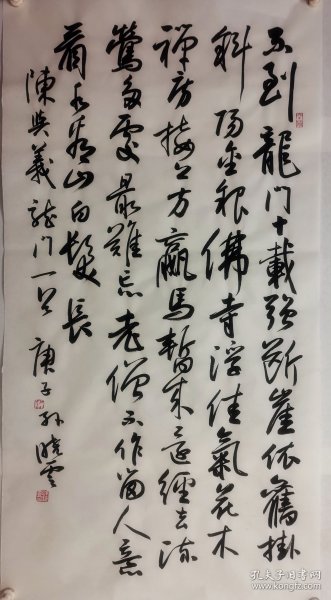 不到龍門十載強斷崖依舊掛
斜陽金銀佛寺浮佳氣花木
禪房接上方羸馬暫來還徑去流
鶯多處最難忘老僧不作留人意
看水看山白髮長
陳與義龍門一首 庚子 孫曉雲
孔夫子旧书网